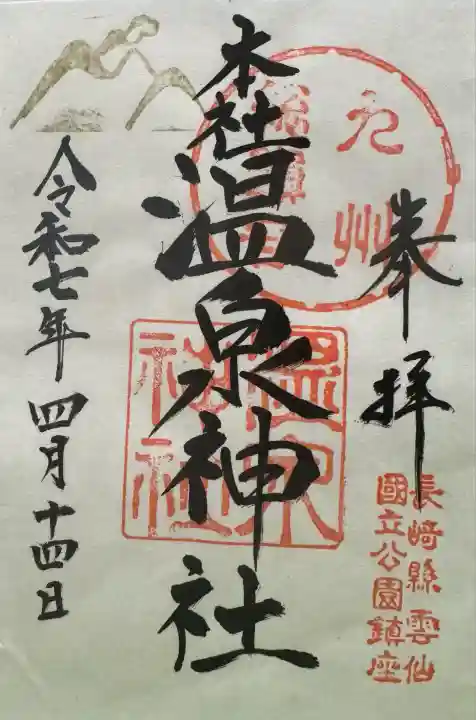 奉拝
長崎縣雲仙
國立公園鎮座
九州
本社
温泉神社
温泉
神社
令和七年四月十四日